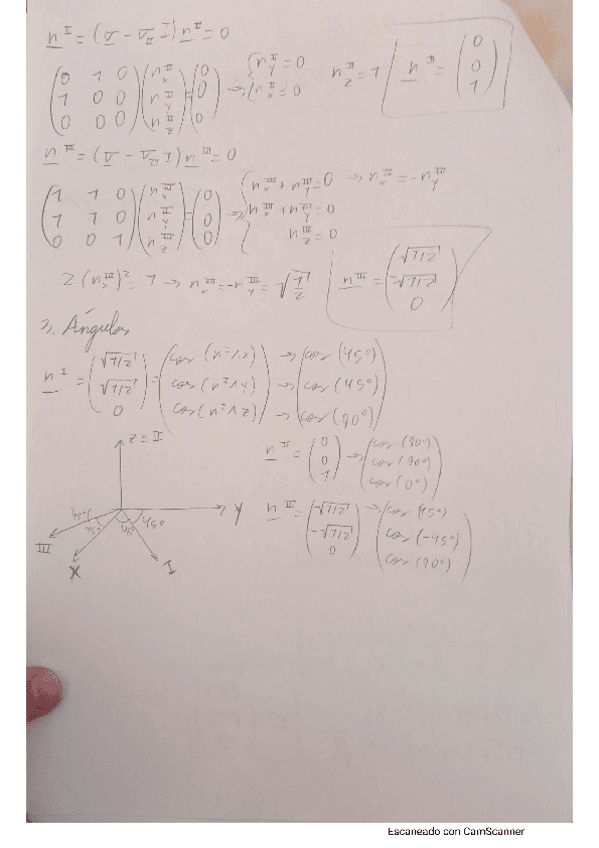 n^I = (σ - σ_II I) n^II = 0
(0 1 0; 1 0 0; 0 0 0) (n_x^II; n_y^II; n_z^II) = (0; 0; 0) → { n_y^II = 0; n_x^II = 0   n_z^II = 1   n^II = (0; 0; 1)
n^III = (σ - σ_III I) n^III = 0
(1 1 0; 1 1 0; 0 0 1) (n_x^III; n_y^III; n_z^III) = (0; 0; 0) → { n_x^III + n_y^III = 0 → n_x^III = -n_y^III; n_x^III + n_y^III = 0; n_z^III = 0
2 (n_x^III)^2 = 1 → n_x^III = -n_y^III = √(1/2)   n^III = (√1/2; -√1/2; 0)
3. Ángulos
n^I = (√1/2; √1/2; 0) = (cos (n^I ∧ x); cos (n^I ∧ y); cos (n^I ∧ z)) → (cos (45°); cos (45°); cos (90°))
z ≡ II
n^II = (0; 0; 1) → (cos (90º); cos (90º); cos (0°))
45° 45° 45° 45°
Y
III
X
I
n^III = (-√1/2; -√1/2; 0) → (cos (45°); cos (-45°); cos (90°))
Escaneado con CamScanner